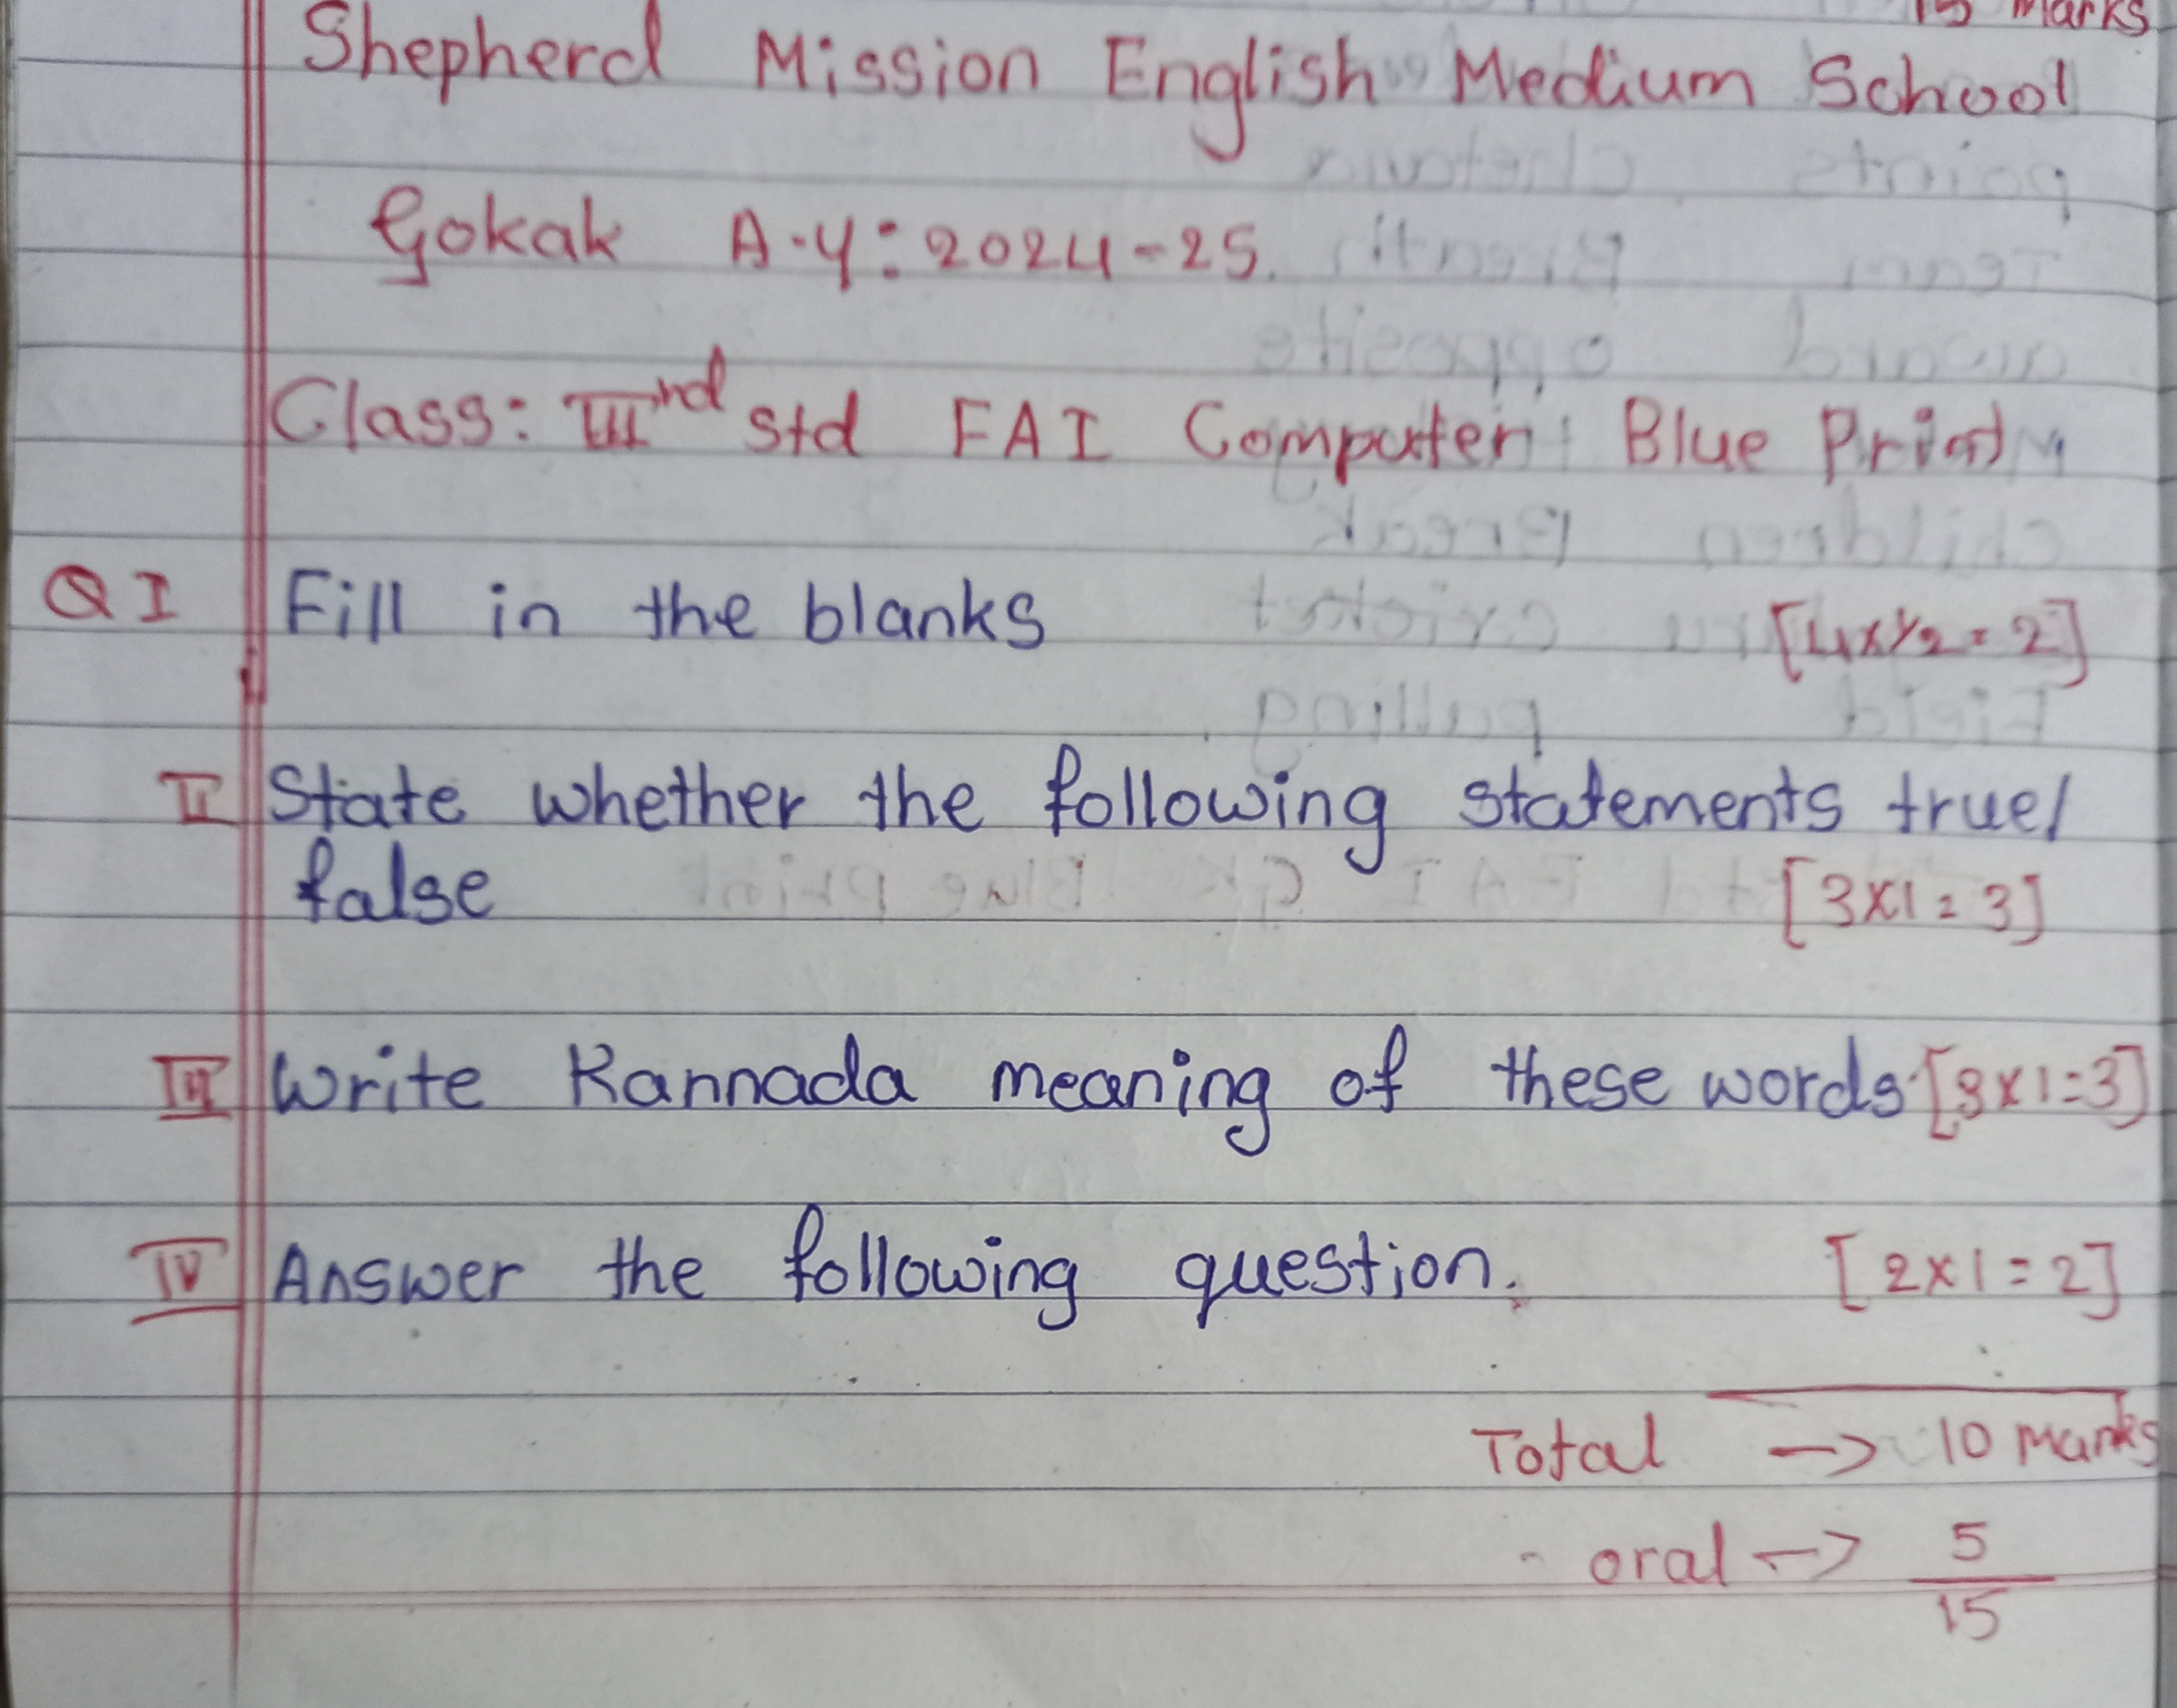 15 Marks
Shepherd Mission English Medium School
Gokak A.Y: 2024-25.
Class: IIIrd std FAI Computer Blue Print
Q I Fill in the blanks [4x1/2=2]
II State whether the following statements true/
false [3x1=3]
III Write Kannada meaning of these words [3x1=3]
IV Answer the following question. [2x1=2]
Total -> 10 Marks
oral -> 5
15